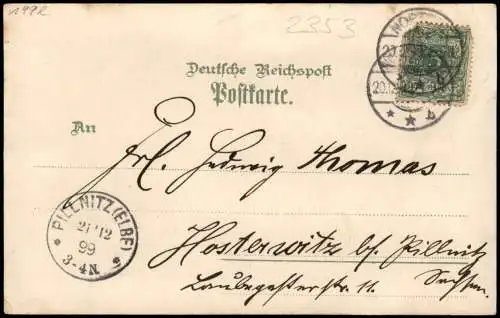 1992
2353
Deutsche Reichspost
Postkarte.
An
Frl. Hedwig Thomas
PILLNITZ (ELBE)
21 12
99
3-4N.
Hosterwitz b/ Pillnitz
Laubegasterstr. 11. Sachsen.
b